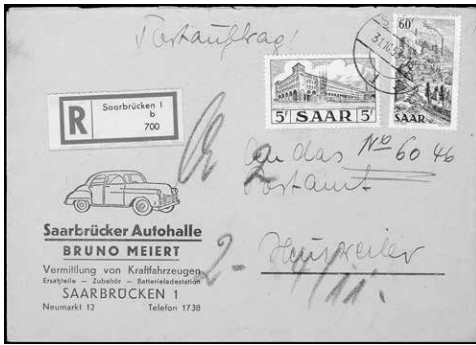 Postauftrag!
60F
31.10.5
R
Saarbrücken 1
b
700
5F SAAR 5F
SAAR
An das No 60 46
Postamt
Heusweiler
2-
4/11.
Saarbrücker Autohalle
BRUNO MEIERT
Vermittlung von Kraftfahrzeugen
Ersatzteile – Zubehör – Batterieladestation
SAARBRÜCKEN 1
Neumarkt 12 Telefon 1738